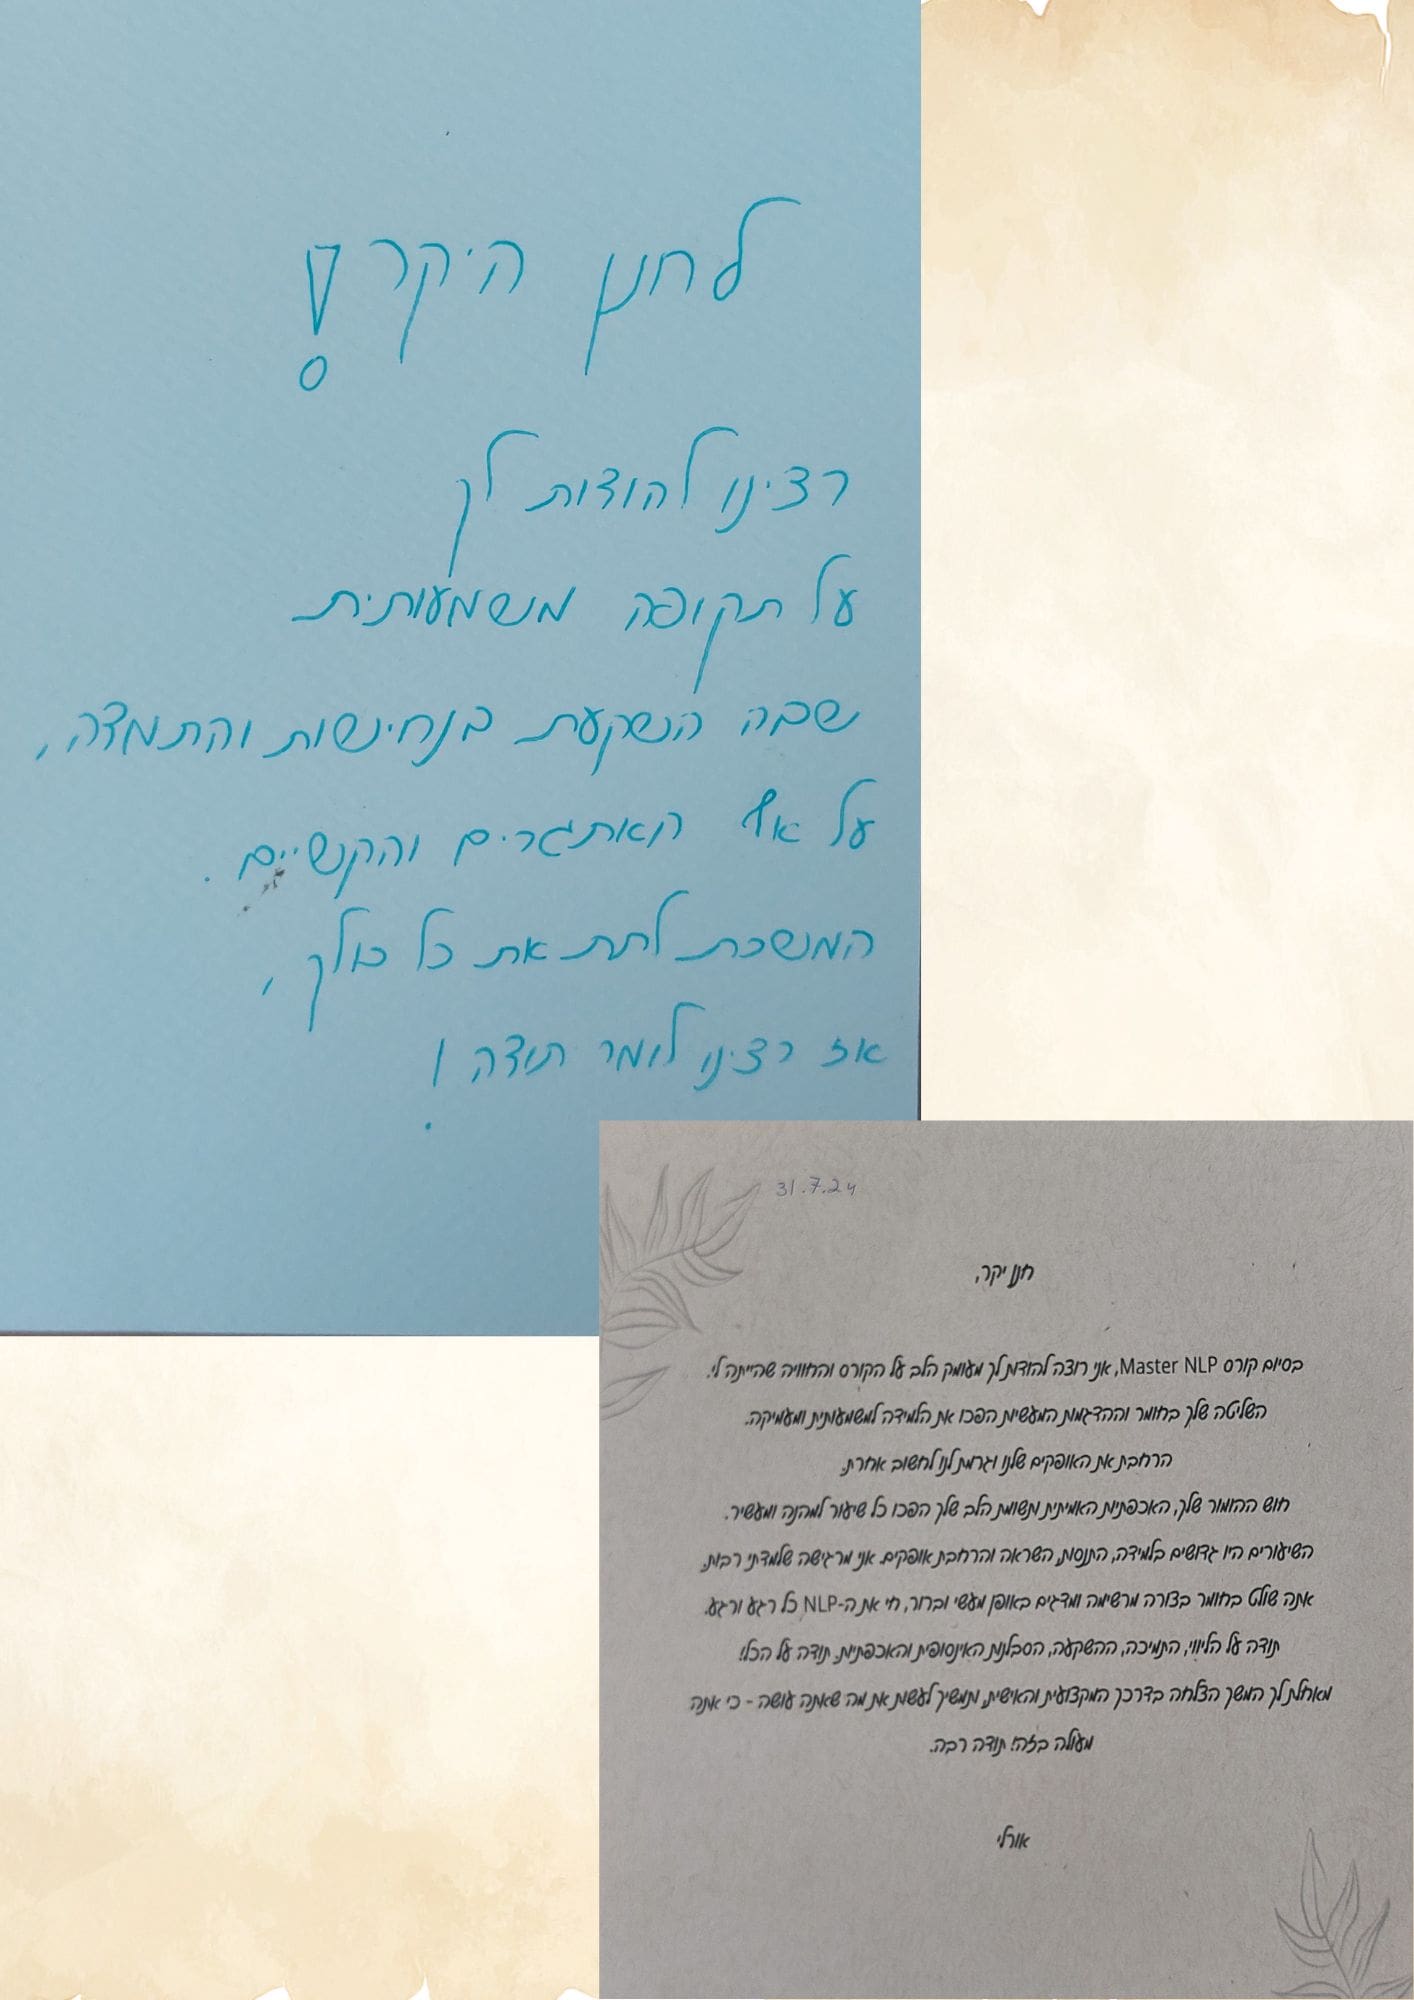 לחנן היקר!
רצינו להודות לך
על תקופה משמעותית
שבה השקעת בנחישות והתמדה,
על אף האתגרים והקשיים.
המשכת לתת את כל כולך,
אז רצינו לומר תודה!
31.7.24
חנן יקר,
בסיום קורס Master NLP, אני רוצה להודות לך מעומק הלב על הקורס והחוויה שהייתה לי.
השליטה שלך בחומר וההדגמות המעשיות הפכו את הלמידה למשמעותית ומעמיקה.
הרחבת את האופקים שלנו וגרמת לנו לחשוב אחרת.
חוש ההומור שלך, האכפתיות האמיתית ותשומת הלב שלך הפכו כל שיעור למהנה ומעשיר.
השיעורים היו גדושים בלמידה, התנסות, השראה והרחבת אופקים. אני מרגישה שלמדתי רבות.
אתה שולט בחומר בצורה מרשימה ומדגים באופן מעשי וברור, חי את ה-NLP כל רגע ורגע.
תודה על הליווי, התמיכה, ההשקעה, הסבלנות האינסופית והאכפתיות. תודה על הכל!
מאחלת לך המשך הצלחה בדרכך המקצועית והאישית, ותמשיך לעשות את מה שאתה עושה - כי אתה
מעולה בזה! תודה רבה.
אורלי